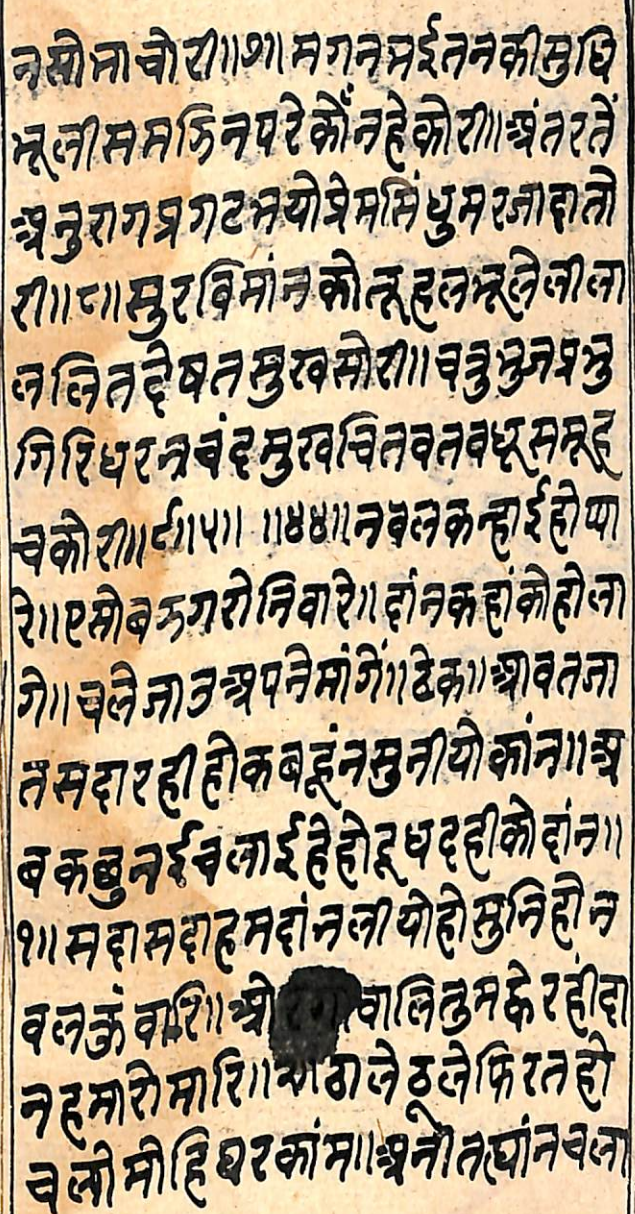 नषोनाचोरी॥७॥मगनभईतनकीसुधि
भूलीसमझिनपरेकोँनहेकोरी॥अंतरतें
अनुरागप्रगटभयोप्रेमसिंधुमरजादातो
री॥८॥सुरविमांनकोतूहलभूलेलीला
ललितदेषतसुखसोरी॥चत्रुभुजप्रभु
गिरिधरनचंदमुखचितवतवधूसमूह
चकोरी॥९॥५॥ ॥४४॥नवलकन्हाईहोप्या
रे॥एसोबझगरोनिवारे॥दांनकहांकोहोला
गे॥चलेजाउअपनेमांगें॥टेक॥आवतजा
तसदारहीहोकबहूंनसुनीयोकांन॥अ
बकछुनईचलाईहेहोदूधदहीकोदांन॥
१॥सदासदाहमदांनलीयोहोसुनिहोन
वलकुंवारि॥ओ वालितुमह्केरहींदा
नहमारोमारि॥ ठालेठूलेफिरतहो
चलोमोहिघरकांम॥अनोतष्यांनचला